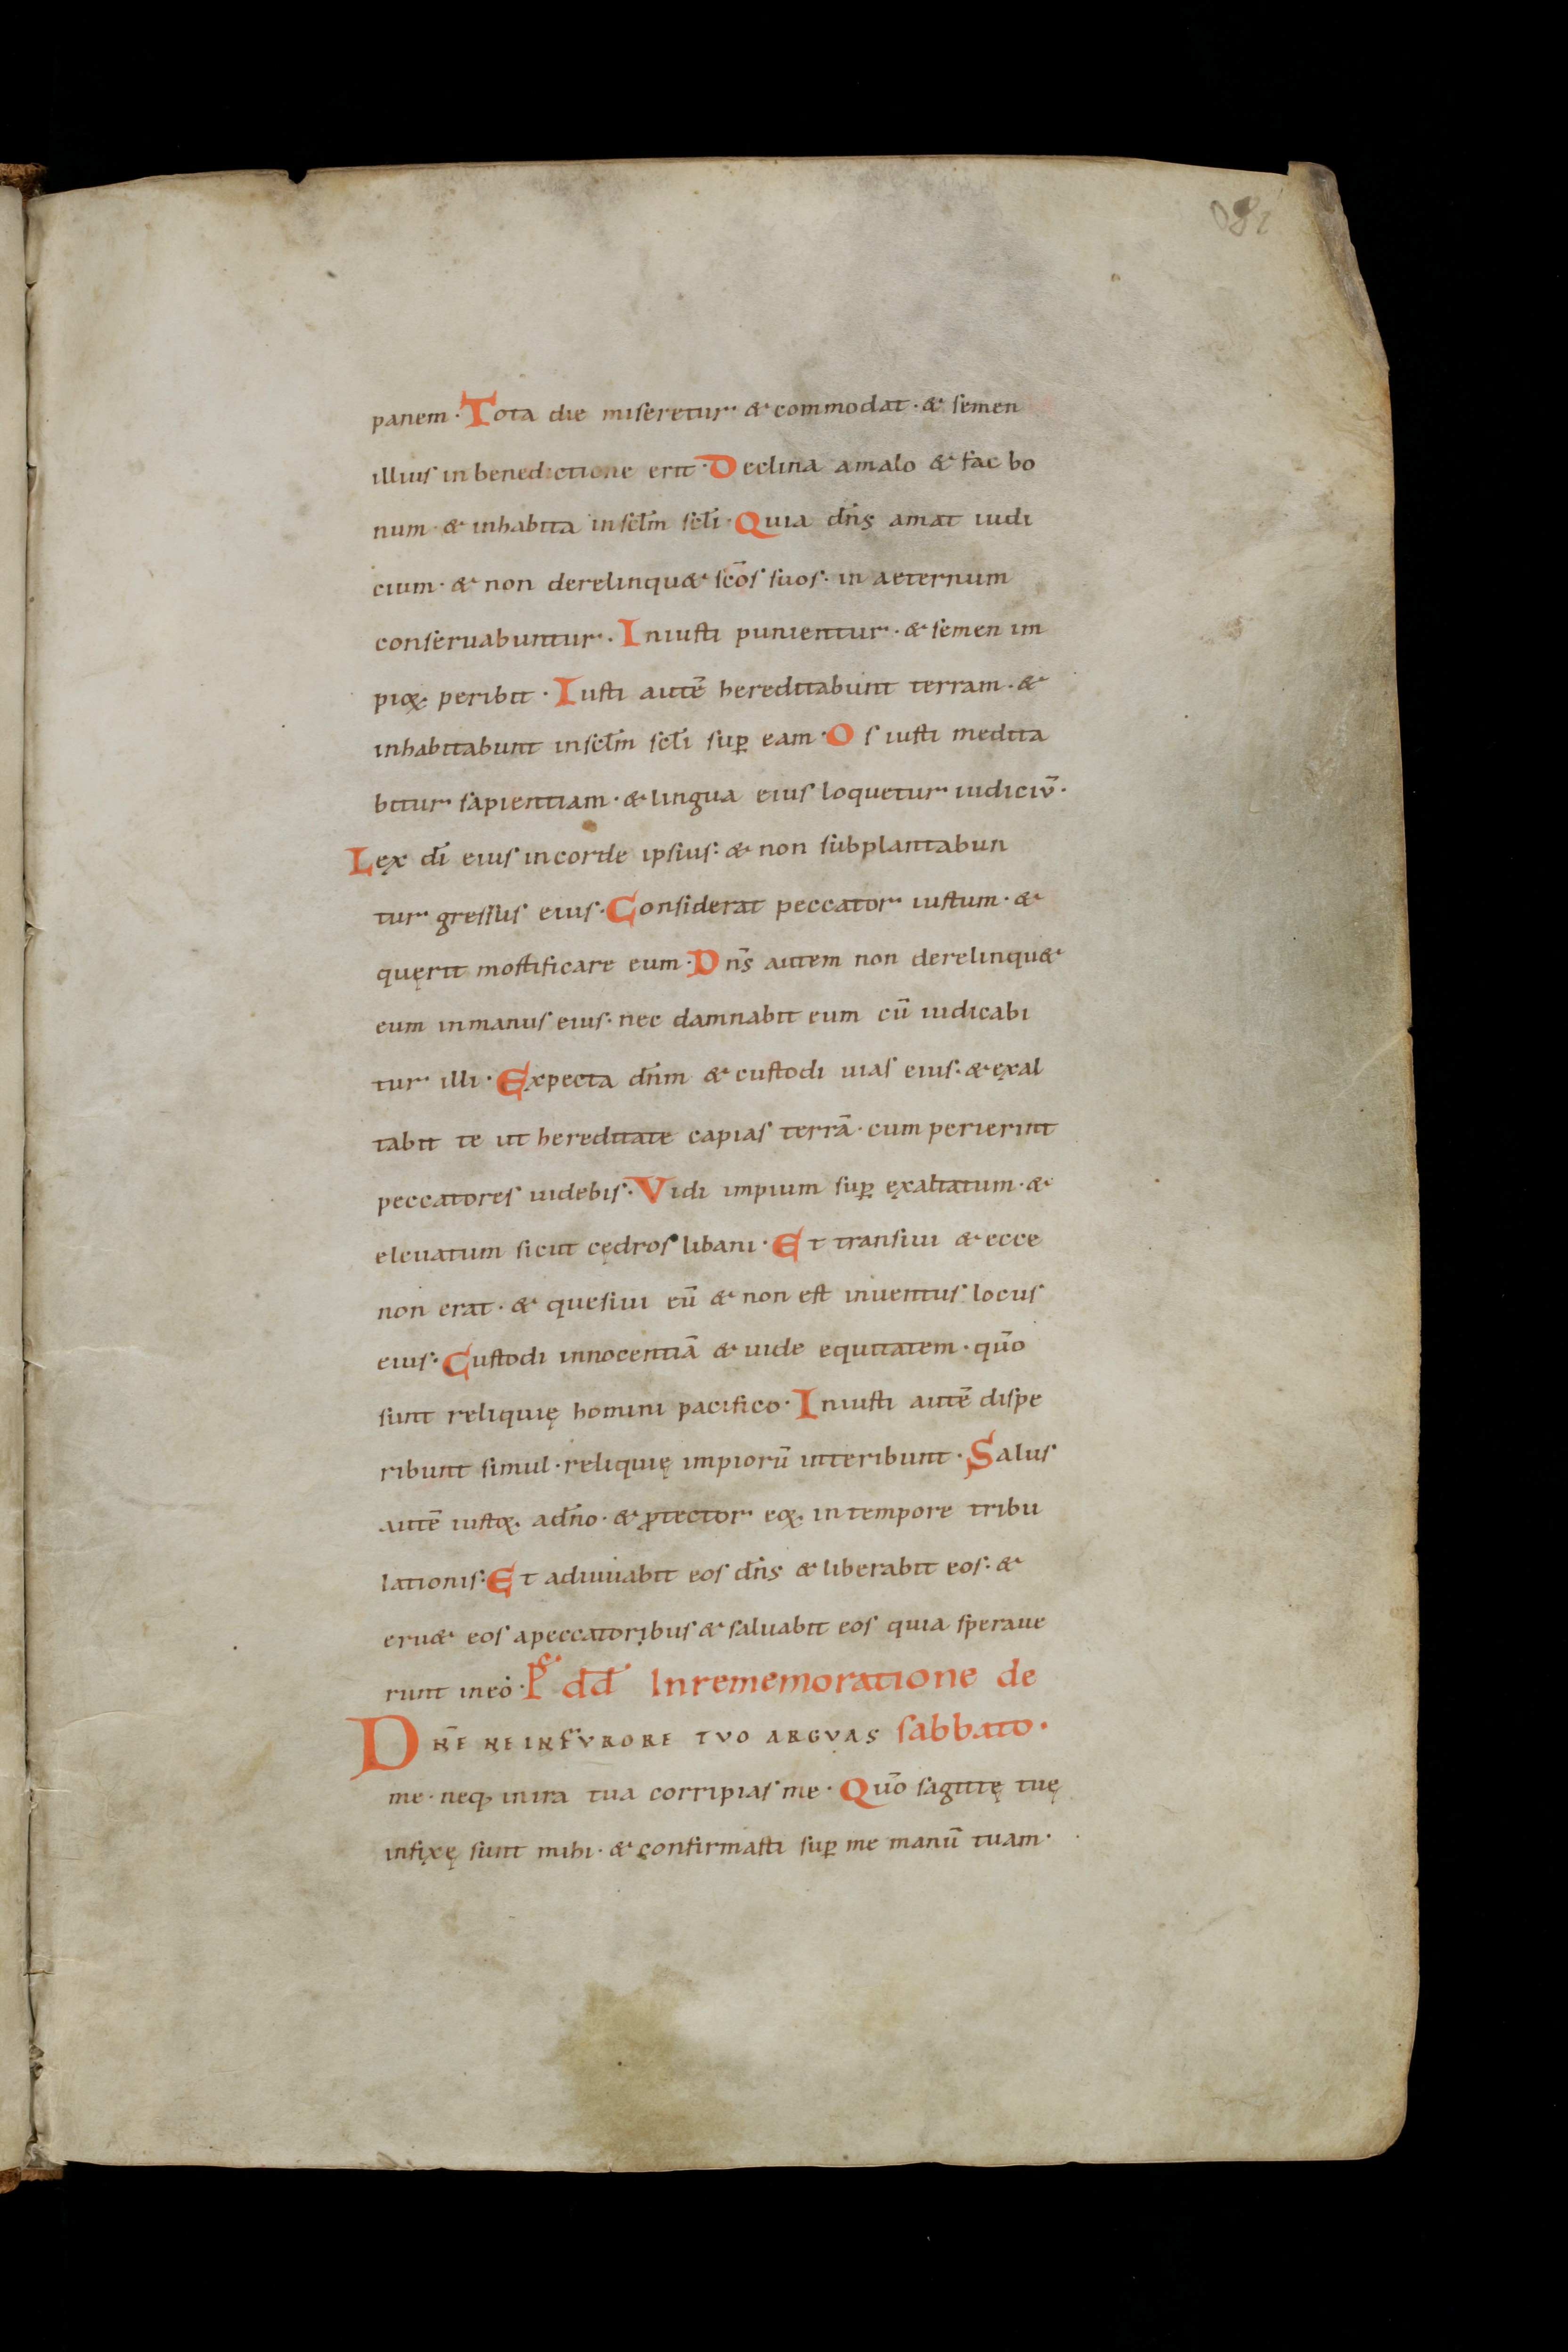 panem · Tota die miseretur & commodat · & semen
illius in benedictione erit · Declina amalo & fac bo
num · & inhabita in sclm̄ scli · Quia dn̄s amat iudi
cium · & non derelinqu& scōs suos · in aeternum
conseruabuntur · Iniusti punientur · & semen im
pioꝝ peribit · Iusti autē hereditabunt terram · &
inhabitabunt insclm̄ scli sup̄ eam · Os iusti medita
bitur sapientiam · & lingua eius loquetur iudiciū ·
Lex dī eius incorde ipsius · & non subplantabun
tur gressus eius · Considerat peccator iustum · &
quęrit mortificare eum · Dn̄s autem non derelinqu&
eum inmanus eius · nec damnabit eum cū iudicabi
tur illi · Expecta dn̄m & custodi uias eius · & exal
tabit te ut hereditate capias terrā · cum perierint
peccatores uidebis · Vidi impium sup̄ exaltatum · &
eleuatum sicut cędros libani · Et transiui & ecce
non erat · & quesiui eū & non est inuentus locus
eius · Custodi innocentiā & uide equitatem · qūo
sunt reliquię homini pacifico · Iniusti autē dispe
ribunt simul · reliquię impiorū interibunt · Salus
autē iustoꝝ adn̄o · & ꝓtector eoꝝ in tempore tribu
lationis · Et adiuuabit eos dn̄s & liberabit eos · &
eru& eos apeccatoribus & saluabit eos quia speraue
runt ineo · Ps̄ dd̄ In rememoratione de
DN̄E NE IN FVRORE TVO ARGVAS sabbato ·
me · neq; inira tua corripias me · Qūo sagittę tuę
infixę sunt mihi · & confirmasti sup̄ me manū tuam ·